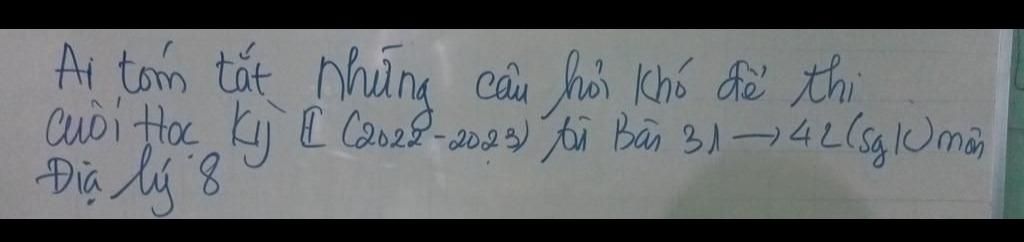 Ai tóm tắt những câu hỏi khó để thi
cuối Học Kỳ II (2022-2023) từ Bài 31 → 42 (sgk) môn
Địa lý 8